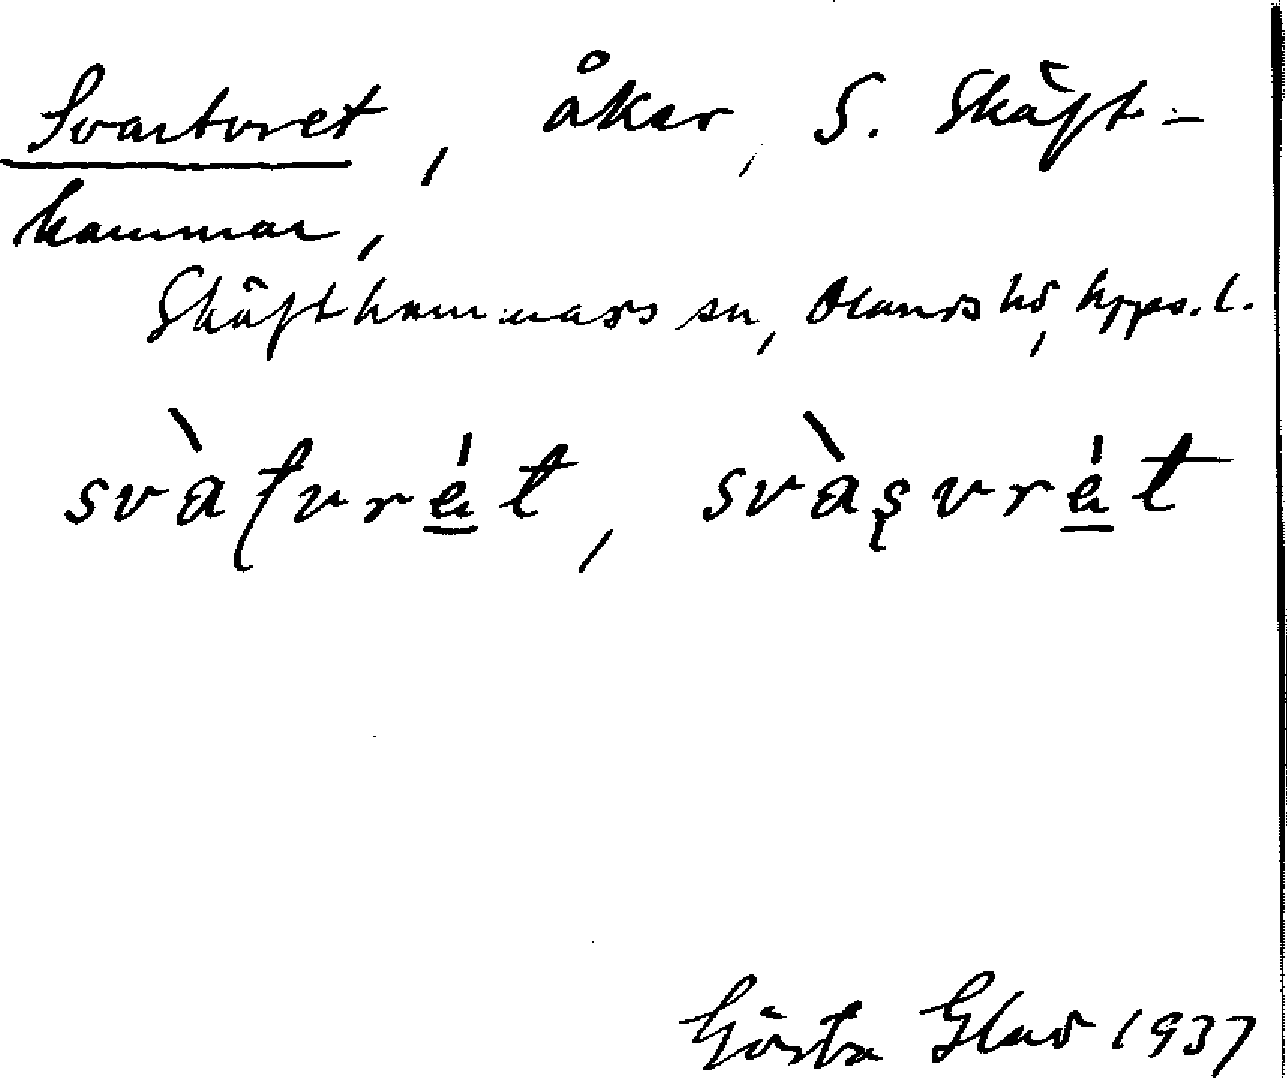 Svartvret, åker, S. Skäft-
hammar,
Skäfthammars sn, Olands hd, Upps. l.
svàʃvrét, svàșvrét
Gösta Glad 1937